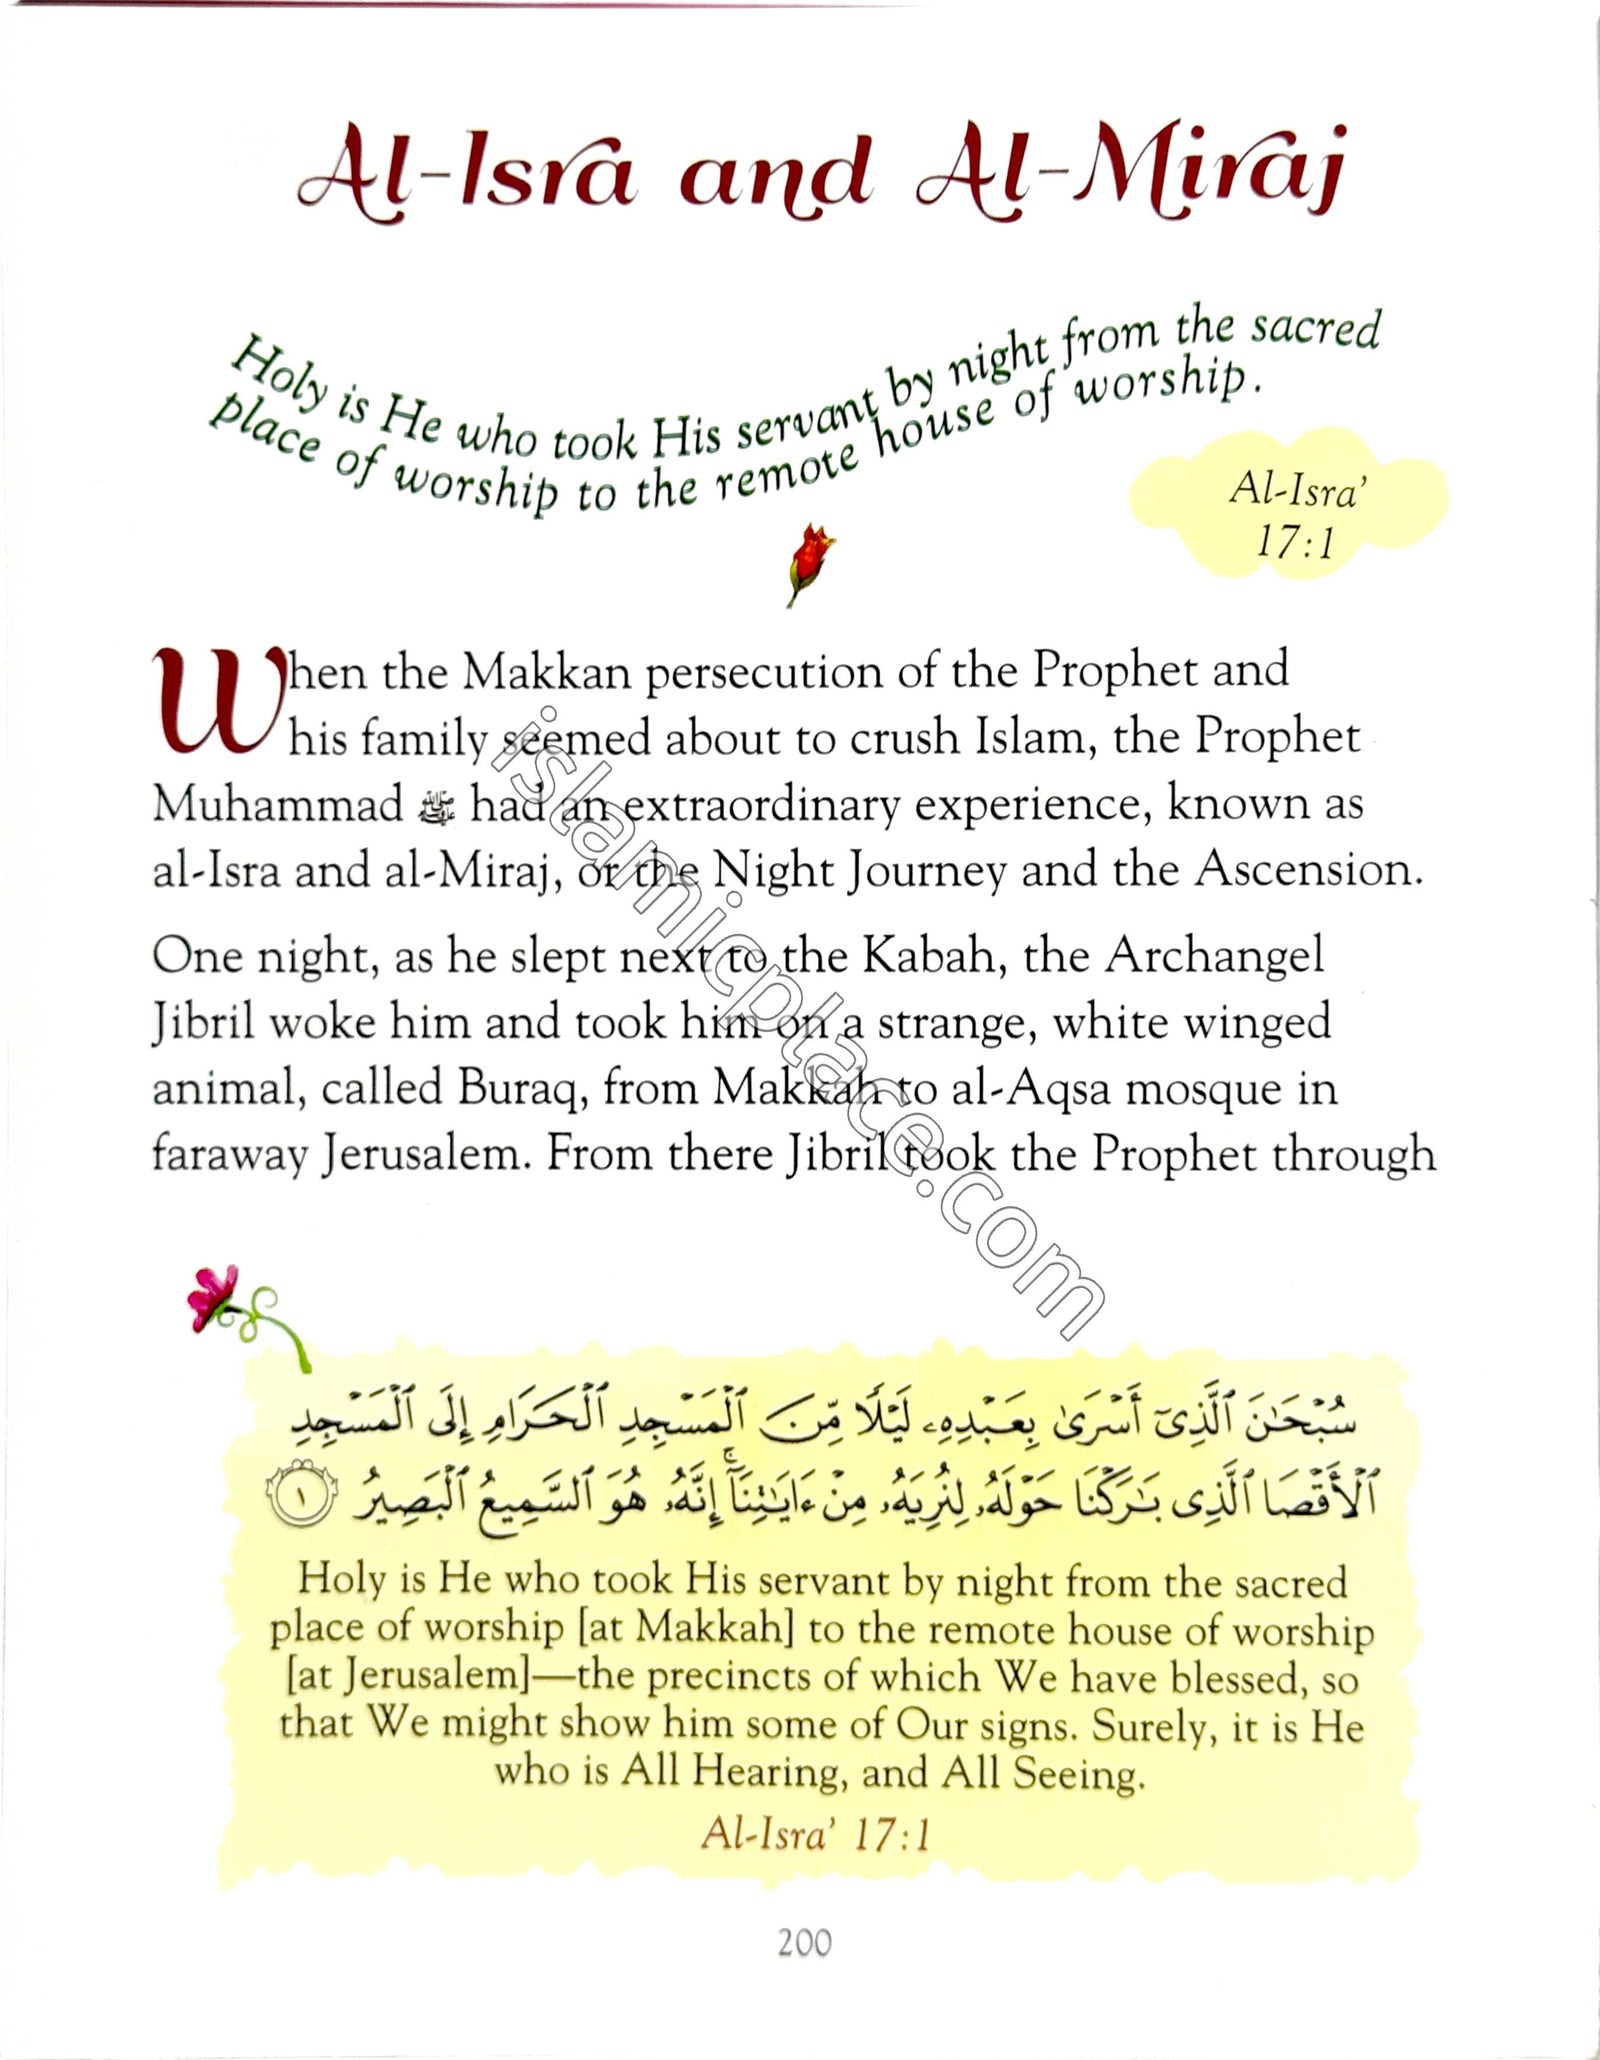 Al-Isra and Al-Miraj
Holy is He who took His servant by night from the sacred
place of worship to the remote house of worship.
Al-Isra’
17:1
When the Makkan persecution of the Prophet and
his family seemed about to crush Islam, the Prophet
Muhammad ﷺ had an extraordinary experience, known as
al-Isra and al-Miraj, or the Night Journey and the Ascension.
One night, as he slept next to the Kabah, the Archangel
Jibril woke him and took him on a strange, white winged
animal, called Buraq, from Makkah to al-Aqsa mosque in
faraway Jerusalem. From there Jibril took the Prophet through
islamicplace.com
سُبْحَٰنَ ٱلَّذِىٓ أَسْرَىٰ بِعَبْدِهِۦ لَيْلًا مِّنَ ٱلْمَسْجِدِ ٱلْحَرَامِ إِلَى ٱلْمَسْجِدِ
ٱلْأَقْصَا ٱلَّذِى بَٰرَكْنَا حَوْلَهُۥ لِنُرِيَهُۥ مِنْ ءَايَٰتِنَآ ۚ إِنَّهُۥ هُوَ ٱلسَّمِيعُ ٱلْبَصِيرُ ١
Holy is He who took His servant by night from the sacred
place of worship [at Makkah] to the remote house of worship
[at Jerusalem]—the precincts of which We have blessed, so
that We might show him some of Our signs. Surely, it is He
who is All Hearing, and All Seeing.
Al-Isra’ 17:1
200